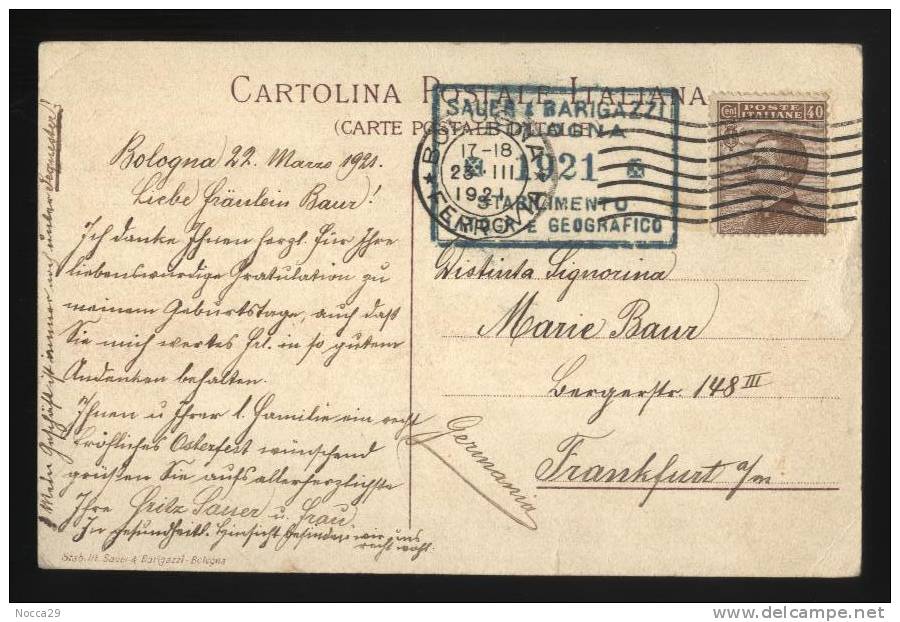 CARTOLINA POSTALE ITALIANA
(CARTE POSTALE D'ITALIE)
SAUER & BARIGAZZI
BOLOGNA
1921
STABILIMENTO
LITOGR. E GEOGRAFICO
BOLOGNA
17-18
23 III
1921
FERROVIA
POSTE
ITALIANE
cent 40
Bologna 22. Marzo 1921.
Liebe Fräulein Baur!
Ich danke Ihnen herzl. für Ihre
liebenswürdige Gratulation zu
meinem Geburtstage, auch daß
Sie mich wertes Frl. in so gutem
Andenken behalten.
Ihnen u Ihrer l. Familie ein recht
fröhliches Osterfest wünschend
grüßen Sie aufs allerherzlichste
Ihre Fritz Sauer u. Frau
In gesundheitl. Hinsicht befinden wir uns
recht wohl.
Mein Geschäft ist immer noch unter Sequester!
Distinta Signorina
Marie Baur
Bergerstr. 148 III
Frankfurt a/m
Germania
Stab. lit. Sauer & Barigazzi - Bologna
Nocca29
www.delcampe.net